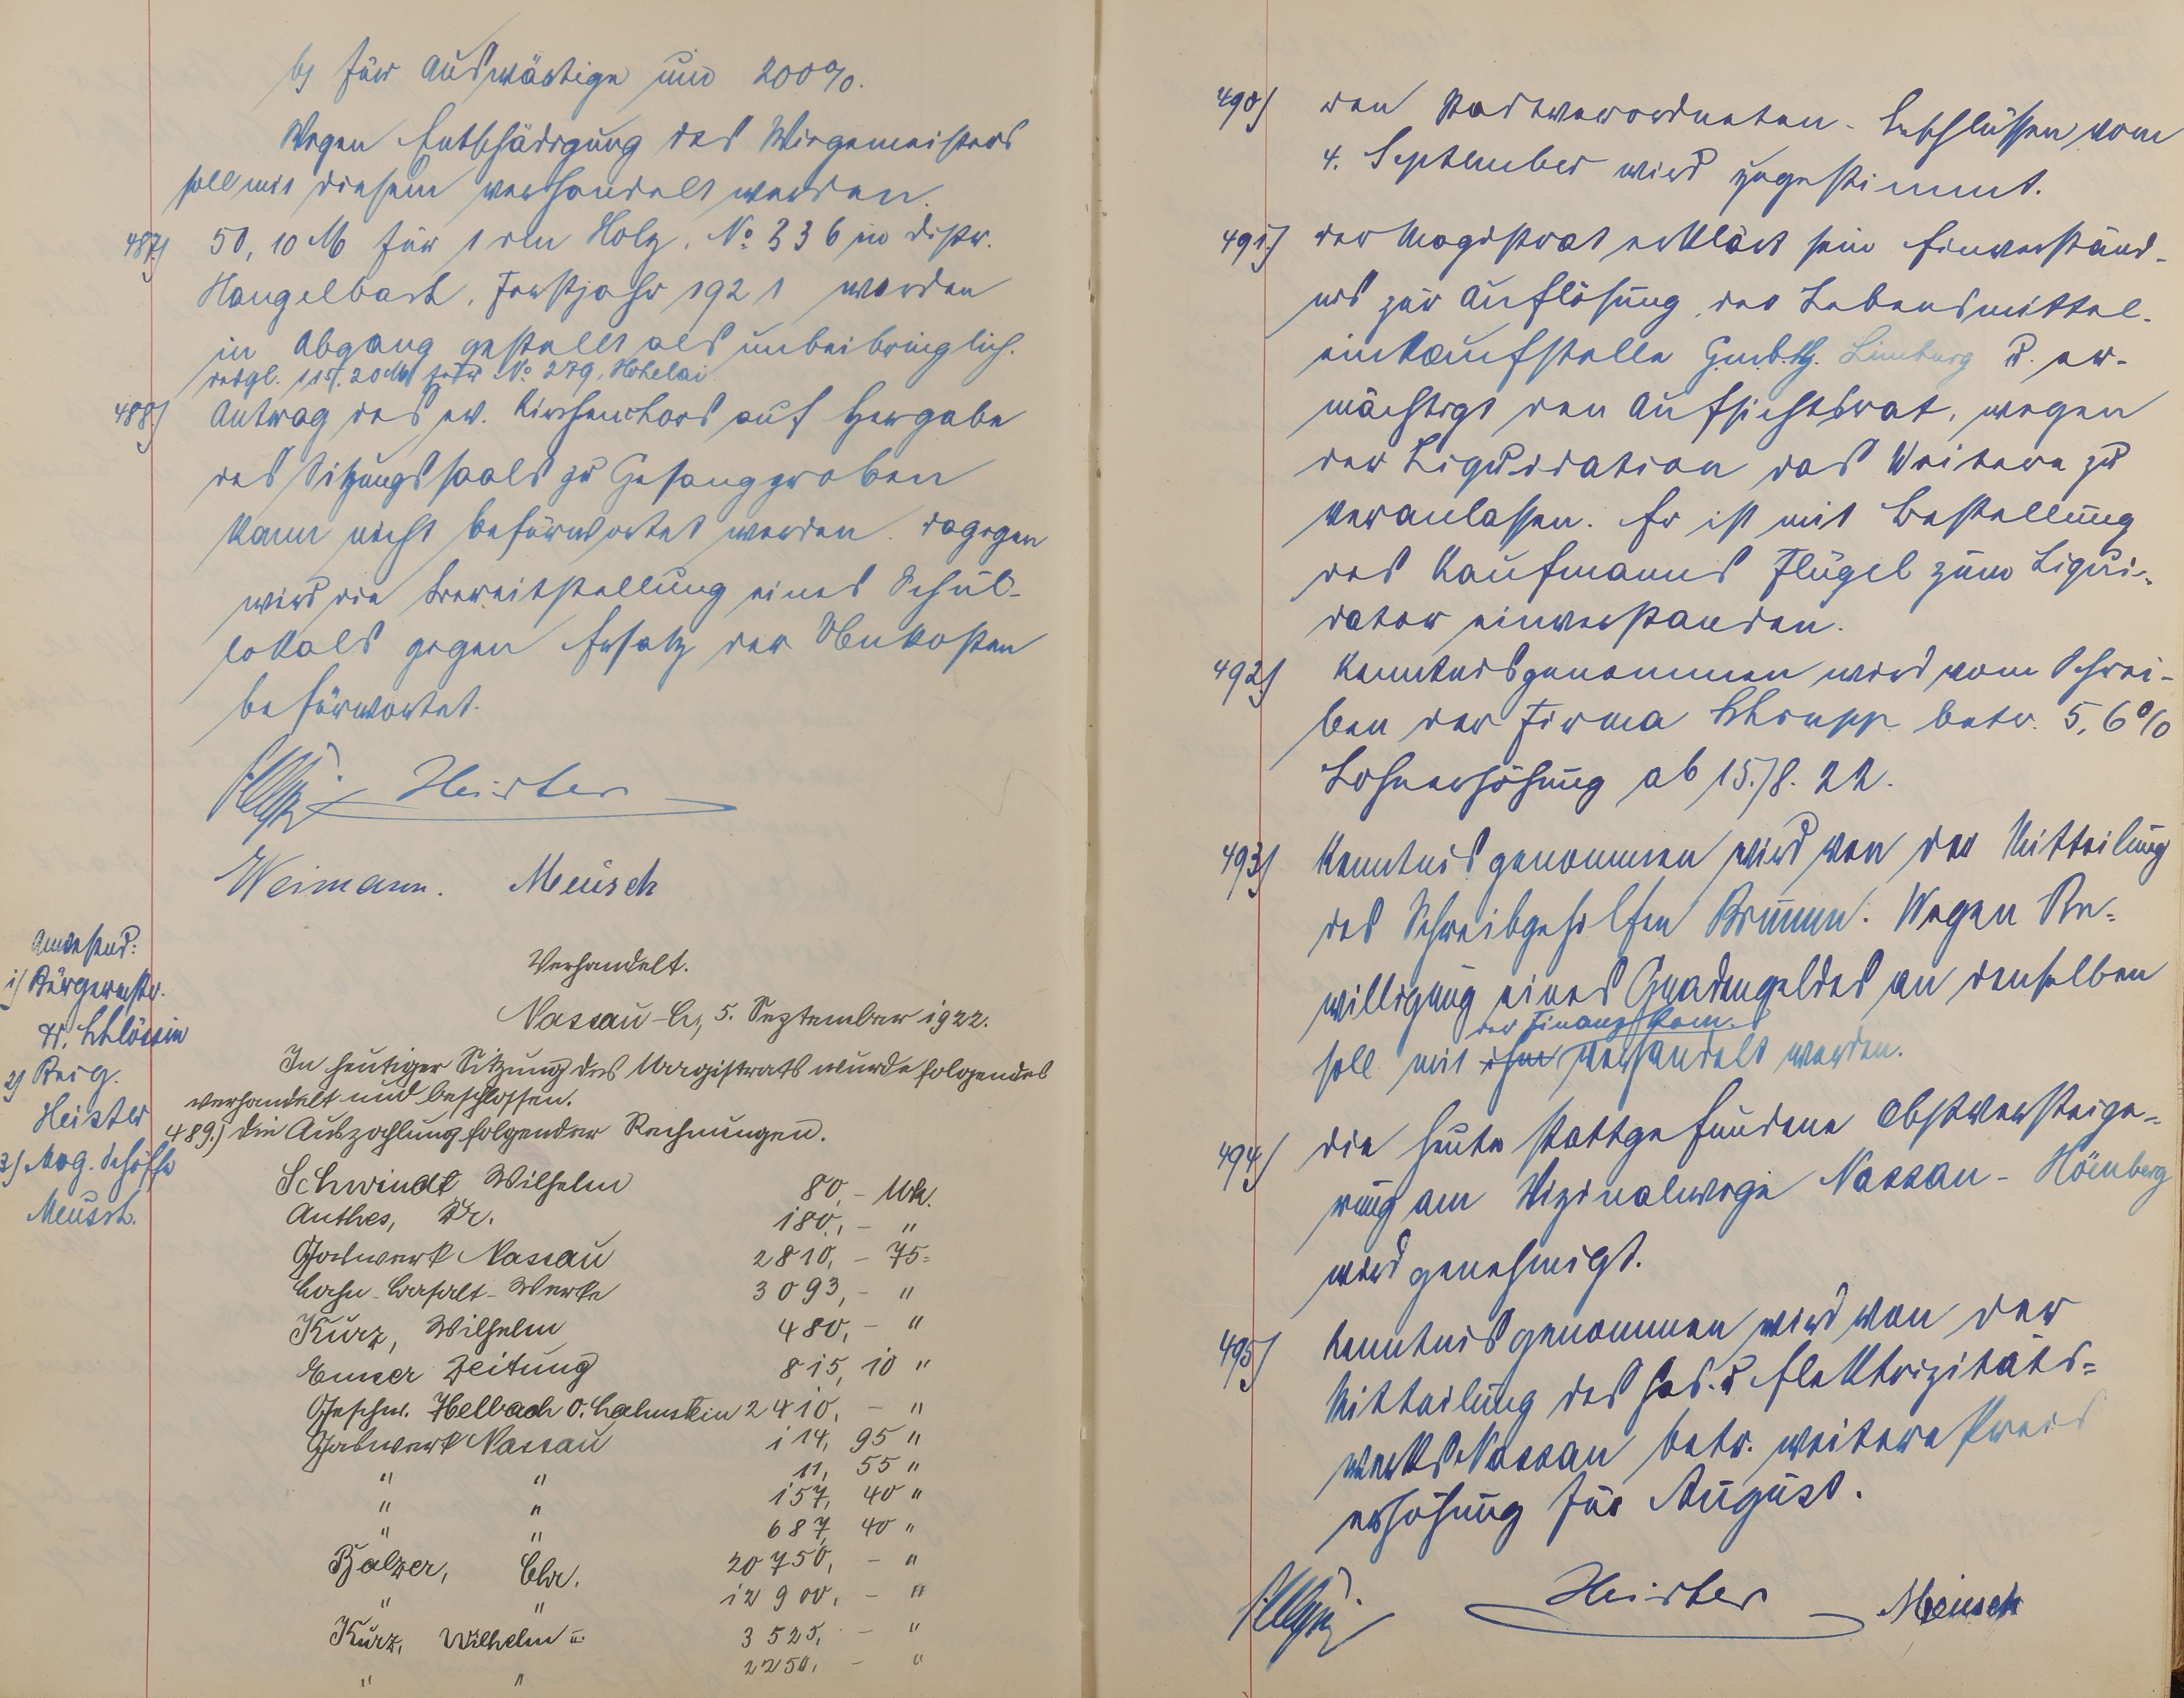 b) für Auswärtige um 200%.
Wegen Entschädigung des Wiegemeisters
soll mit diesem verhandelt werden.
487.) 50,10 M für 1 rm Holz, No 336 in Distr.
Hangelbach, Forstjahr 1921 werden
in Abgang gestellt als unbeibringlich.
desgl. 115.20 M für No 279, Hohelai
488.) Antrag des ev. Kirchenchors auf Hergabe
des Sitzungssaals zu Gesangproben
kann nicht befürwortet werden. Dagegen
wird die Bereitstellung eines Schul-
lokals gegen Ersatz der Unkosten
befürwortet.
Heister
Weimann. Meusch
Anwesend:
1) Bürgermstr.
H. Schlössin
2) Beig.
Heister
3) Mag. Schöffe
Meusch.
Verhandelt.
Nassau, 5. September 1922.
In heutiger Sitzung des Magistrats wurde folgendes
verhandelt und beschlossen.
489.) Die Auszahlung folgender Rechnungen.
Schwindt, Wilhelm 80,- Mk.
Anthes, Dr. 180,- "
Gaswerk Nassau 2810,- 75=
Lahn-Basalt-Werke 3093,- "
Kurz, Wilhelm 480,- "
Emser Zeitung 815,10 "
Geschw. Helbach O.Lahnstein 2410,- "
Gaswerk Nassau 114,95 "
" " 11,55 "
" " 157,40 "
" " 687,40 "
Balzer, Chr. 20750,- "
" " 12900,- "
Kurz, Wilhelm 3525,- "
" " 2250,- "
490) Den Stadtverordneten-Beschlüssen vom
4. September wird zugestimmt.
491.) Der Magistrat erklärt sein Einverständ-
nis zur Auflösung der Lebensmittel-
einkaufstelle G.m.b.H. Limburg u. er-
mächtigt den Aufsichtsrat, wegen
der Liquidation das Weitere zu
veranlassen. Er ist mit Bestellung
des Kaufmanns Flügel zum Liqui-
dator einverstanden.
492.) Kenntnis genommen wird vom Schrei-
ben der Firma betr. 5,6%
Lohnerhöhung ab 15./8. 22.
493) Kenntnis genommen wird von der Mitteilung
des Schreibgehilfen Brumm. Wegen Be-
willigung eines Gnadengeldes an denselben
der Finanzkom.
soll mit ihm verhandelt werden.
494) Die heute stattgefundene Obstversteige-
rung am Vizinalwege Nassau-Hömberg
wird genehmigt.
495) Kenntnis genommen wird von der
Mitteilung des Gas- u. Elektrizitäts-
werks Nassau betr. weitere Preis
erhöhung für August.
Heister Meusch